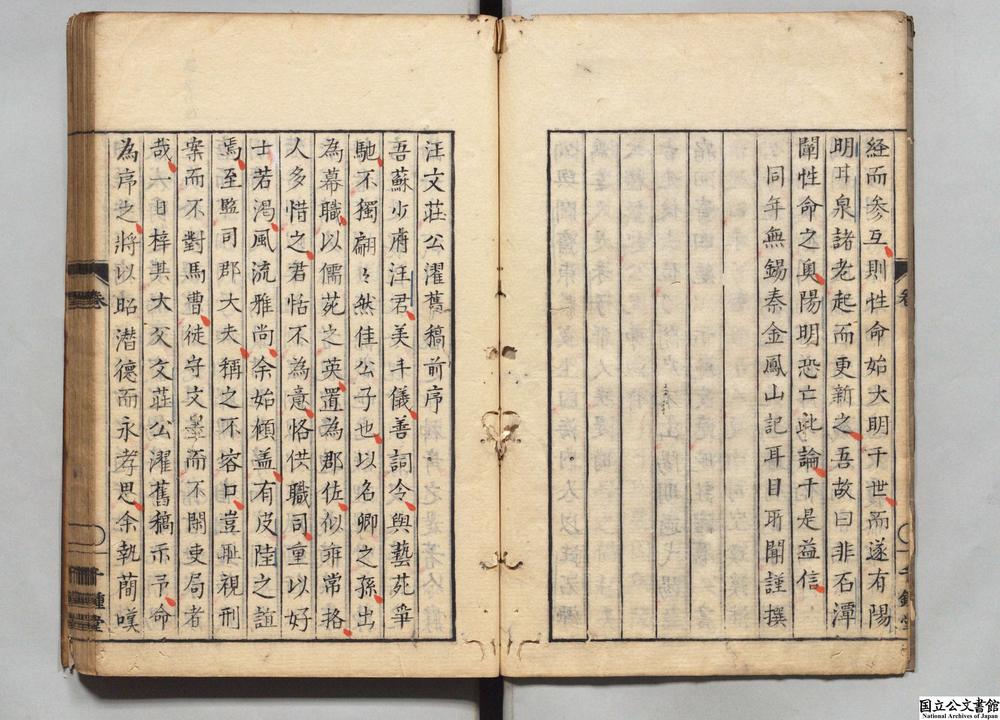 経而參互則性命始大明于世而遂有陽
明甘泉諸老起而更新之吾故曰非石潭
闡性命之奧陽明恐亡此論于是益信
同年無錫秦金鳳山記耳目所聞謹撰
汪文莊公濯舊稿前序
吾蘇少府汪君美丰儀善詞令與藝苑爭
馳不獨翩々然佳公子也以名卿之孫出
為幕職以儒苑之英置為郡佐似非常格
人多惜之君恬不為意恪供職司重以好
士若渴風流雅尚余始傾盖有皮陸之誼
焉至監司郡大夫稱之不容口豈與視刑
案而不對馬曹徒守文墨而不閑吏局者
哉一日梓其大父文莊公濯舊稿示予命
為序之將以昭潛德而永孝思余執簡嘆
卷
千鍾堂
国立公文書館
National Archives of Japan